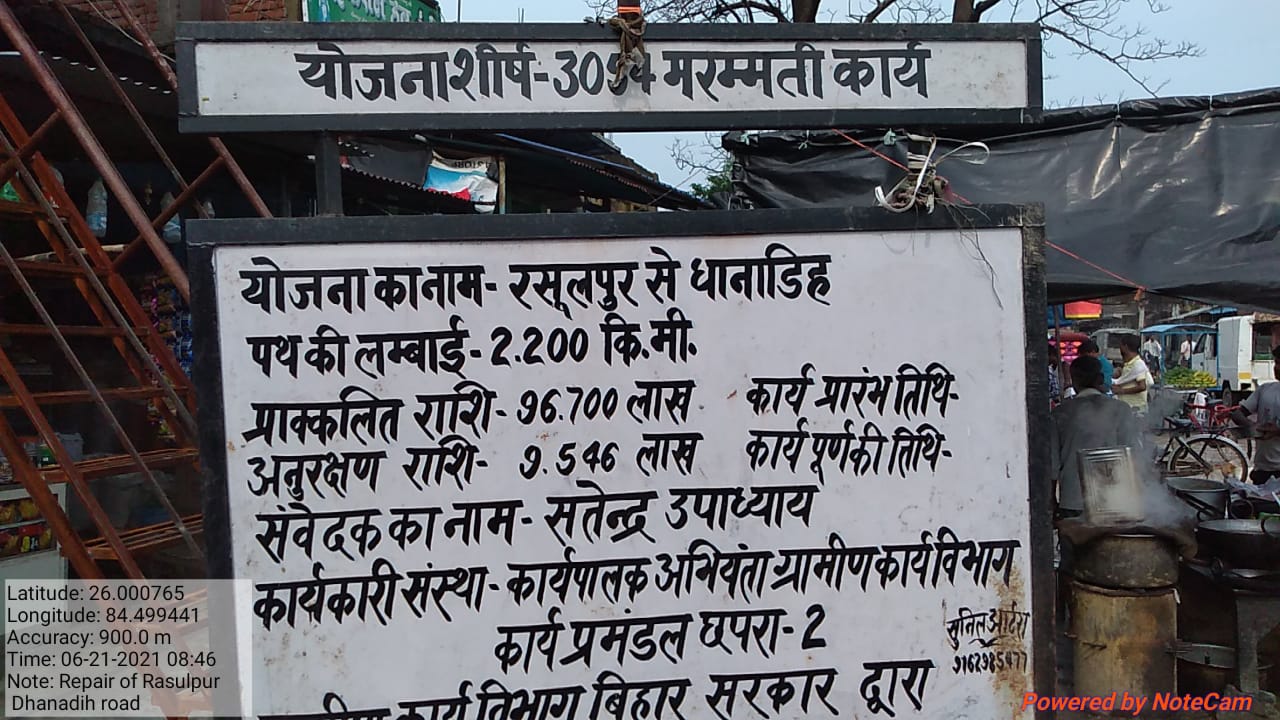 योजना शीर्ष-3054 मरम्मती कार्य
योजना का नाम- रसूलपुर से धानाडिह
पथ की लम्बाई- 2.200 कि.मी.
प्राक्कलित राशि- 96.700 लाख कार्य प्रारंभ तिथि-
अनुरक्षण राशि- 9.546 लाख कार्य पूर्ण की तिथि-
संवेदक का नाम- सतेन्द्र उपाध्याय
कार्यकारी संस्था- कार्यपालक अभियंता ग्रामीण कार्य विभाग
कार्य प्रमंडल छपरा-2
सुनिल आर्ट
कार्य विभाग बिहार सरकार द्वारा
Latitude: 26.000765
Longitude: 84.499441
Accuracy: 900.0 m
Time: 06-21-2021 08:46
Note: Repair of Rasulpur
Dhanadih road
Powered by NoteCam